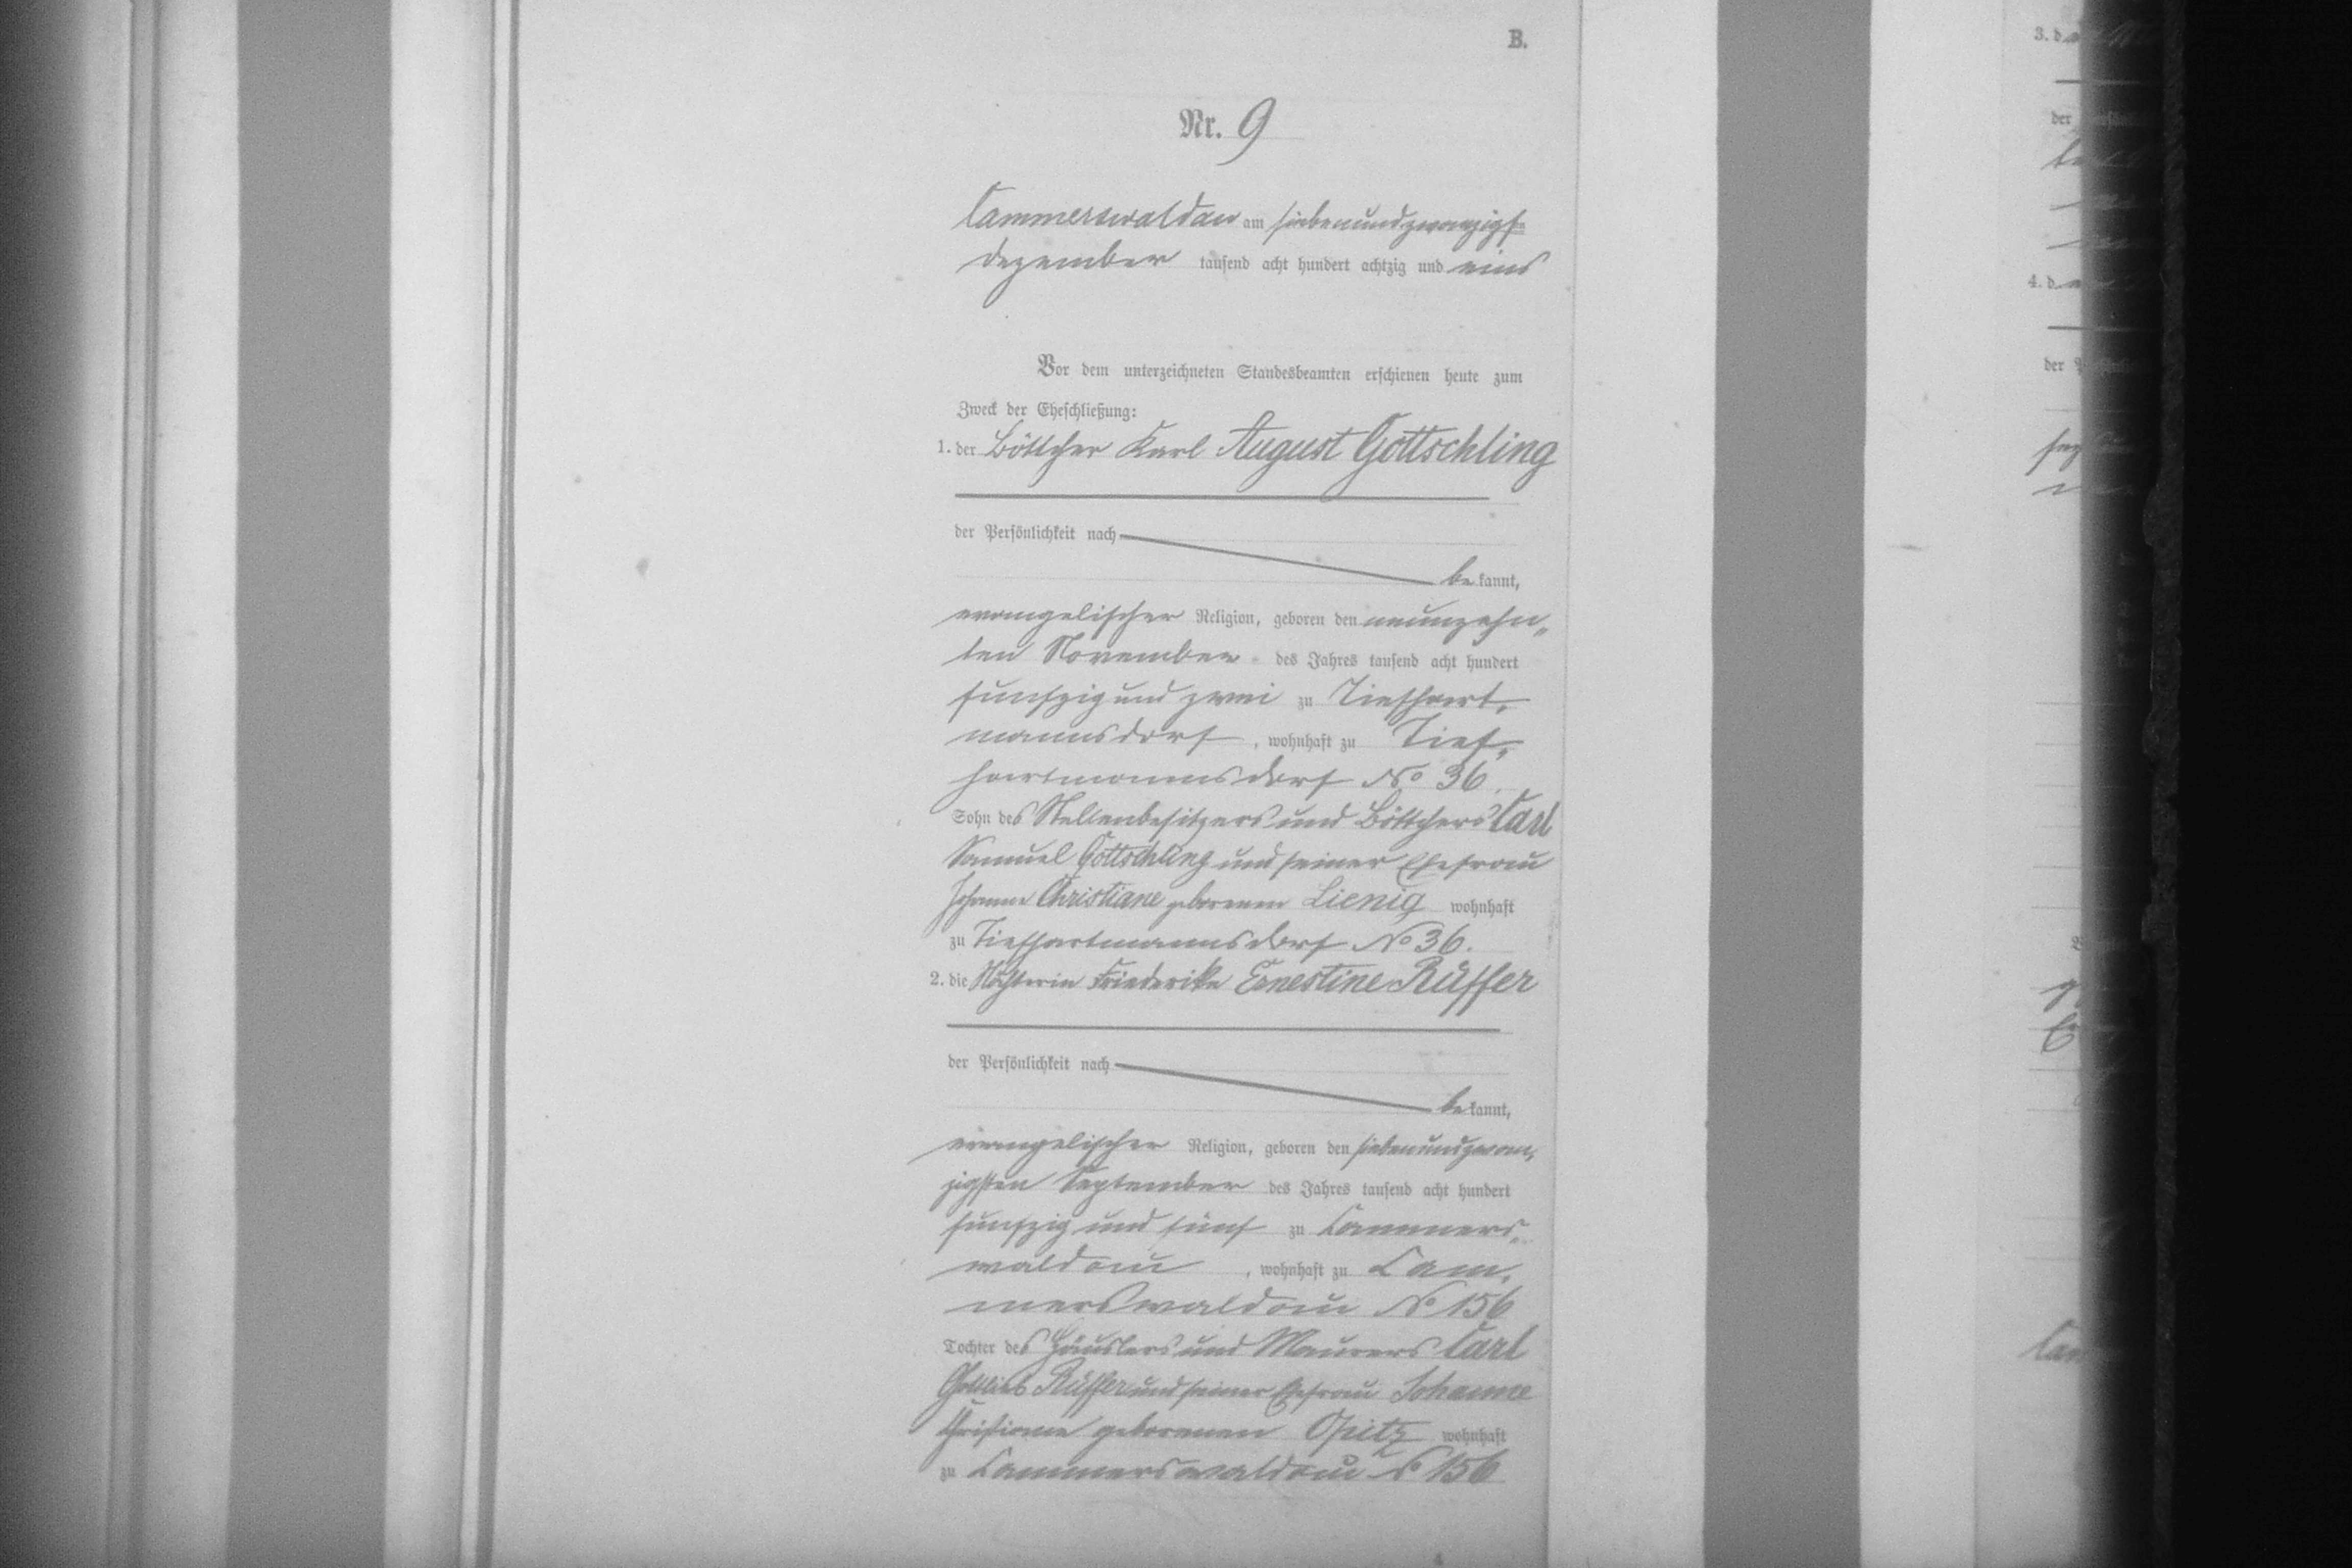 B.
Nr. 9
Cammerswaldau am siebenundzwanzigsten
Dezember tausend acht hundert achtzig und eins
Vor dem unterzeichneten Standesbeamten erschienen heute zum
Zweck der Eheschließung:
1. der Böttcher Karl August Gottschling
der Persönlichkeit nach
be kannt,
evangelischer Religion, geboren den neunzehn„
ten November des Jahres tausend acht hundert
funfzig und zwei zu Tiefhart„
mannsdorf, wohnhaft zu Tief„
hartmannsdorf No 36.
Sohn des Stellenbesitzers und Böttchers Carl
Samuel Gottschling und seiner Ehefrau
Johanne Christiane geborenen Lienig wohnhaft
zu Tiefhartmannsdorf No 36.
2. die Friederike Ernestine Rüffer
der Persönlichkeit nach
be kannt,
evangelischer Religion, geboren den siebenundzwan„
zigsten September des Jahres tausend acht hundert
funfzig und fünf zu Cammers„
waldau, wohnhaft zu Cam„
merswaldau No 156
Tochter des Häuslers und Maurers Carl
Gottlieb Rüffer und seiner Ehefrau Johanne
Christiane geborenen Opitz wohnhaft
zu Cammerswaldau No 156
3. d
der
4. d
der